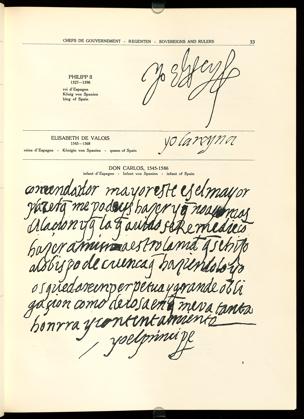 CHEFS DE GOUVERNEMENT - REGENTEN - SOVEREIGNS AND RULERS 33
PHILIPP II
1527—1598
roi d'Espagne
König von Spanien
king of Spain
yo el Rey
ELISABETH DE VALOIS
1545—1568
reine d'Espagne - Königin von Spanien - queen of Spain
yo la reyna
DON CARLOS, 1545-1586
infant d'Espagne - Infant von Spanien - infant of Spain
comendador mayor este es el mayor
plazer q me podeys hazer y q no
alo q la q quando se Remedie
hazer a mi maestro lema q se hizo
al obispo de cuenca q haziendolo yo
os quedare muy perpetua y grande obli
gacion como de cosa en q me va tanta
honrra y contentamiento
yo el principe